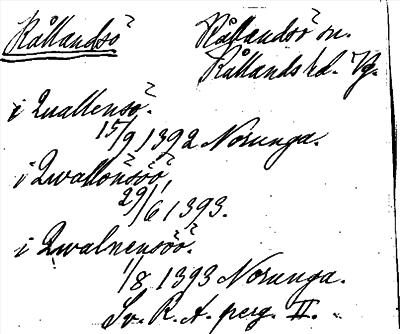 Kållandsö
Kållandsö sn.
Kållands hd. Vg.
i Quallensö.
15/9 1392 Norunga.
i Qwallonsöö,
29/6 1393.
i Qwalnensöö.
1/8 1393 Norunga.
Sv. R. A. perg. II.